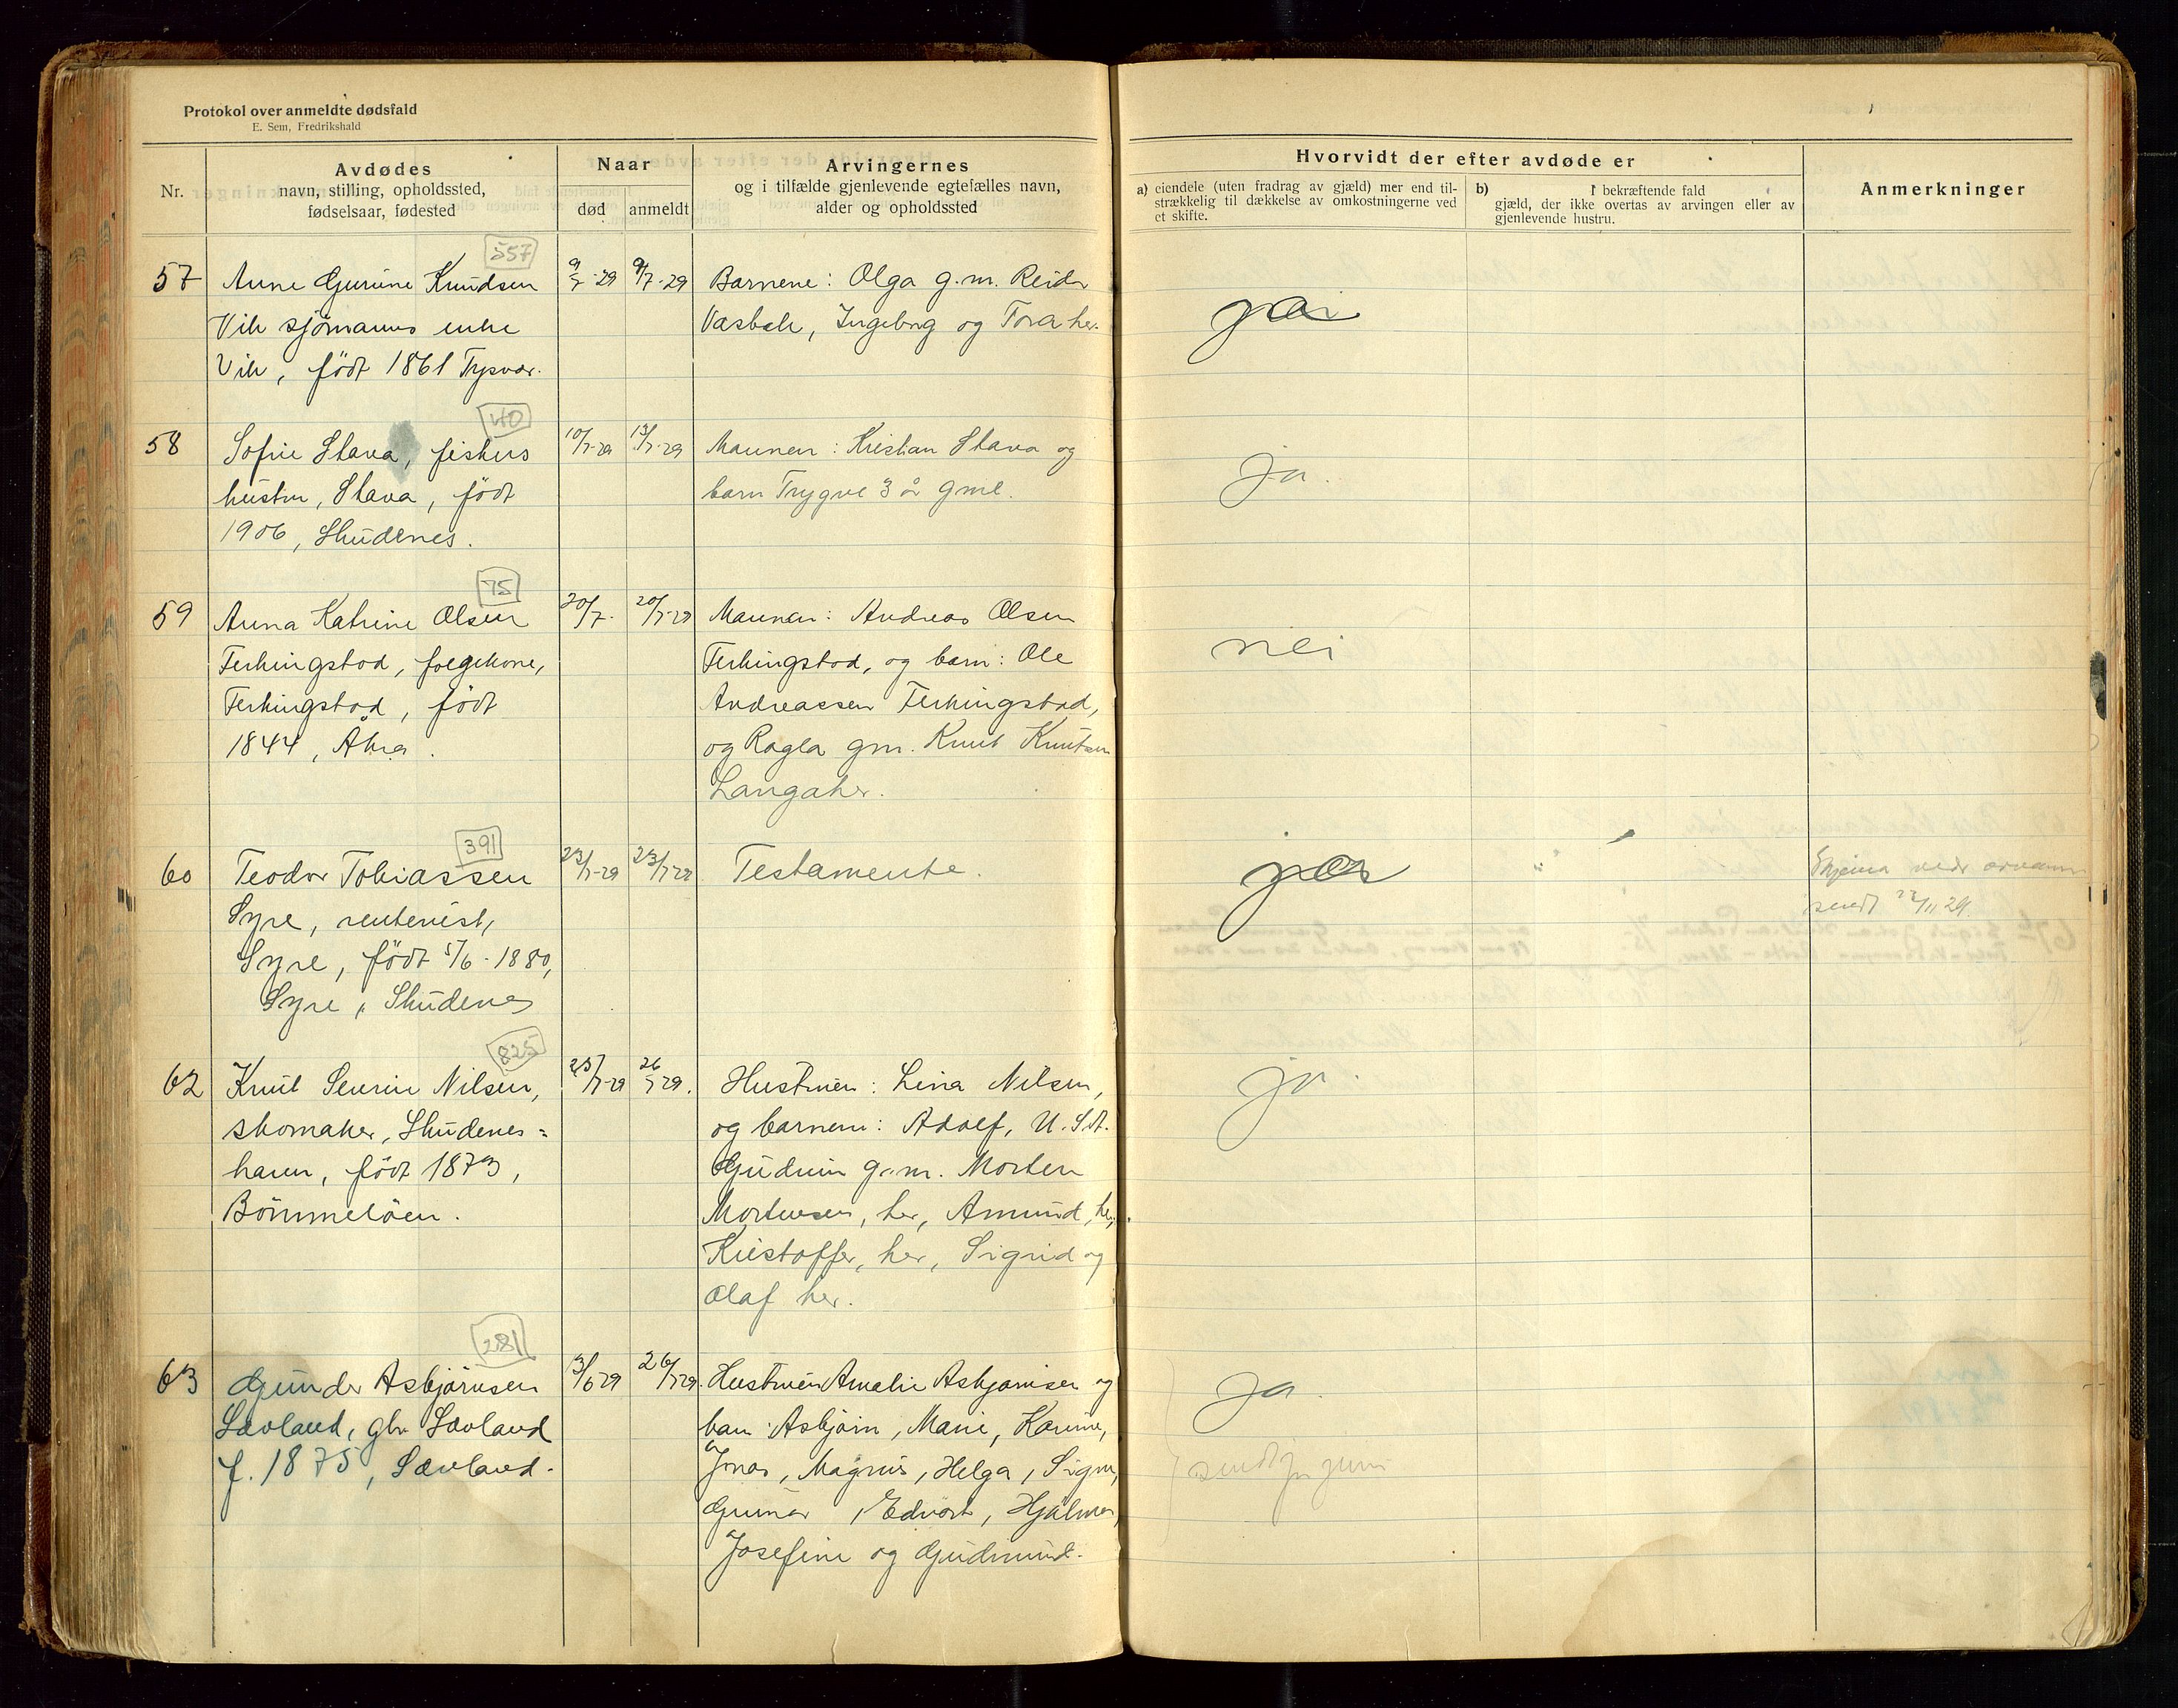 Protokol over anmeldte dødsfald
E. Sem, Fredrikshald
Nr.
Avdødes
navn, stilling, opholdssted,
fødselsaar, fødested
Naar
død
anmeldt
Arvingernes
og i tilfælde gjenlevende egtefælles navn,
alder og opholdssted
Hvorvidt der efter avdøde er
a) eiendele (uten fradrag av gjæld) mer end til-
strækkelig til dækkelse av omkostningerne ved
et skifte.
b) I bekræftende fald
gjæld, der ikke overtas av arvingen eller av
gjenlevende hustru.
Anmerkninger
557
57
Anne Gurine Knudsen
Vik sjömanns enke
Vik, födt 1861 Tysvær.
9/7-29
9/7-29
Barnene: Olga g.m. Reidar
Ingeborg og Tora her.
ja
40
58
Sofie Stava, fiskers
hustru, Stava, födt
1906, Skudenes.
10/7-29
13/7-29
Mannen: Kristian Stava og
barn Trygve 3 år gml.
ja.
75
59
Anna Katrine Olsen
Ferkingstad, folgekone,
Ferkingstad, födt
1844, Åkra.
20/7.
20/7-29
Mannen: Andreas Olsen
Ferkingstad, og barn: Ole
Andreassen Ferkingstad,
og Ragla gm. Knut Knutsen
Langaker.
nei
391
60
Teodor Tobiassen
Syre, rentenist,
Syre, födt 5/6-1880,
Syre, Skudenes
23/7-29
23/7-29
Testamente.
ja
Skjema vedr
sendt 22/11 29.
825
62
Knut Severin Nilsen,
skomaker, Skudenes=
havn, födt 1873,
Bömmelöen.
25/7-29
26/7-29.
Hustruen: Lina Nilsen,
og barnene: Adolf, U.S.A.
Gudrun g.m. Morten
Mortensen, her, Amund, her,
Kristoffer, her, Sigrid og
Olaf her.
ja.
281
63
Gunder Asbjörnsen
Sævland, gbr. Sævland
f. 1875, Sævland.
3/6 29
26/7 29
Hustruen Amalie Asbjörnsen og
barn: Asbjörn, Marie, Karine,
Jonas, Magnus, Helga, Signe,
Gunnar, Edvart, Hjalmar,
Josefine og Gudmund.
Ja.